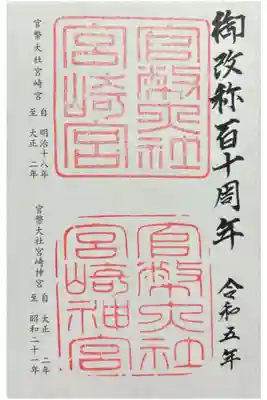 御改称百十周年
令和五年
官幣大社
宮崎宮
官幣大社宮崎宮 自 明治十八年
至 大正 二年
官幣大社
宮崎神宮
官幣大社宮崎神宮 自 大正 二年
至 昭和二十一年